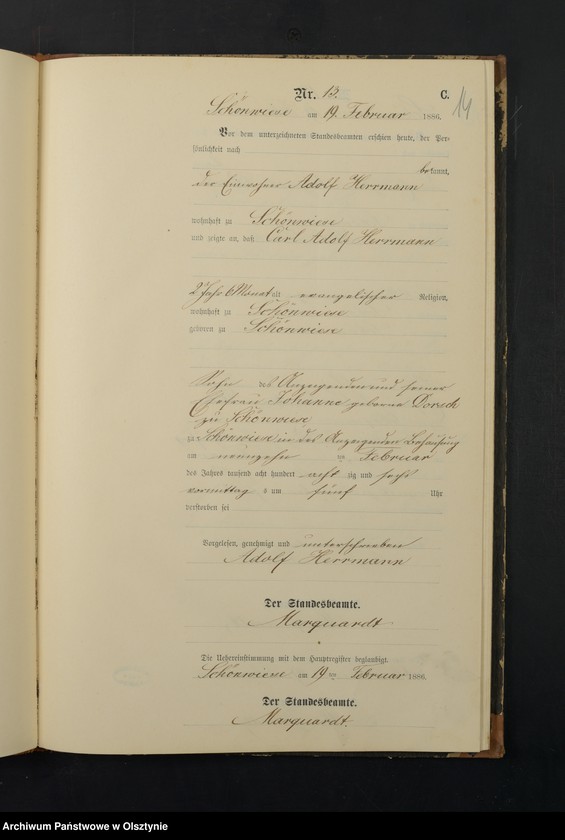 Nr. 13. C.
14
Schönwiese am 19. Februar 1886.
Vor dem unterzeichneten Standesbeamten erschien heute, der Per-
sönlichkeit nach
bekannt,
der Einwohner Adolf Herrmann
wohnhaft zu Schönwiese
und zeigte an, daß Carl Adolf Herrmann
2 Jahr 6 Monat alt evangelischer Religion,
wohnhaft zu Schönwiese
geboren zu Schönwiese
Sohn des Anzeigenden und seiner
Ehefrau Johanne geborne Dorsch
zu Schönwiese
zu Schönwiese in des Anzeigenden Behausung
am neunzehn ten Februar
des Jahres tausend acht hundert acht zig und sechs
vormittag s um fünf Uhr
verstorben sei
Vorgelesen, genehmigt und unterschrieben
Adolf Herrmann
Der Standesbeamte.
Marquardt
Die Uebereinstimmung mit dem Hauptregister beglaubigt.
Schönwiese am 19 ten Februar 1886.
Der Standesbeamte.
Marquardt.
Archiwum Państwowe w Olsztynie